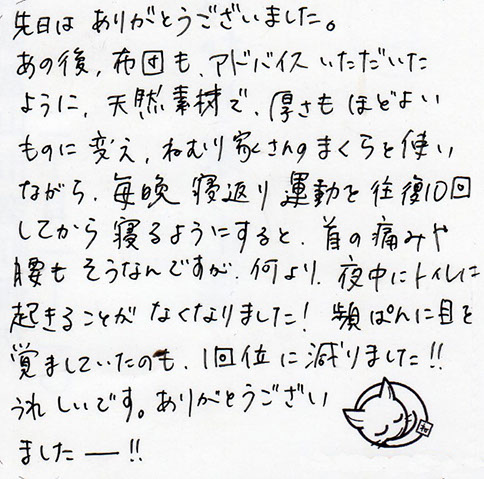 先日は ありがとうございました。
あの後、布団も、アドバイスいただいた
ように、天然素材で、厚さもほどよい
ものに変え、ねむり家さんのまくらを使い
ながら、毎晩 寝返り運動を往復10回
してから寝るようにすると、首の痛みや
腰もそうなんですが、何より、夜中にトイレに
起きることがなくなりました! 頻ぱんに目を
覚ましていたのも、1回位に減りました!!
うれしいです。ありがとうござい
ましたー!!